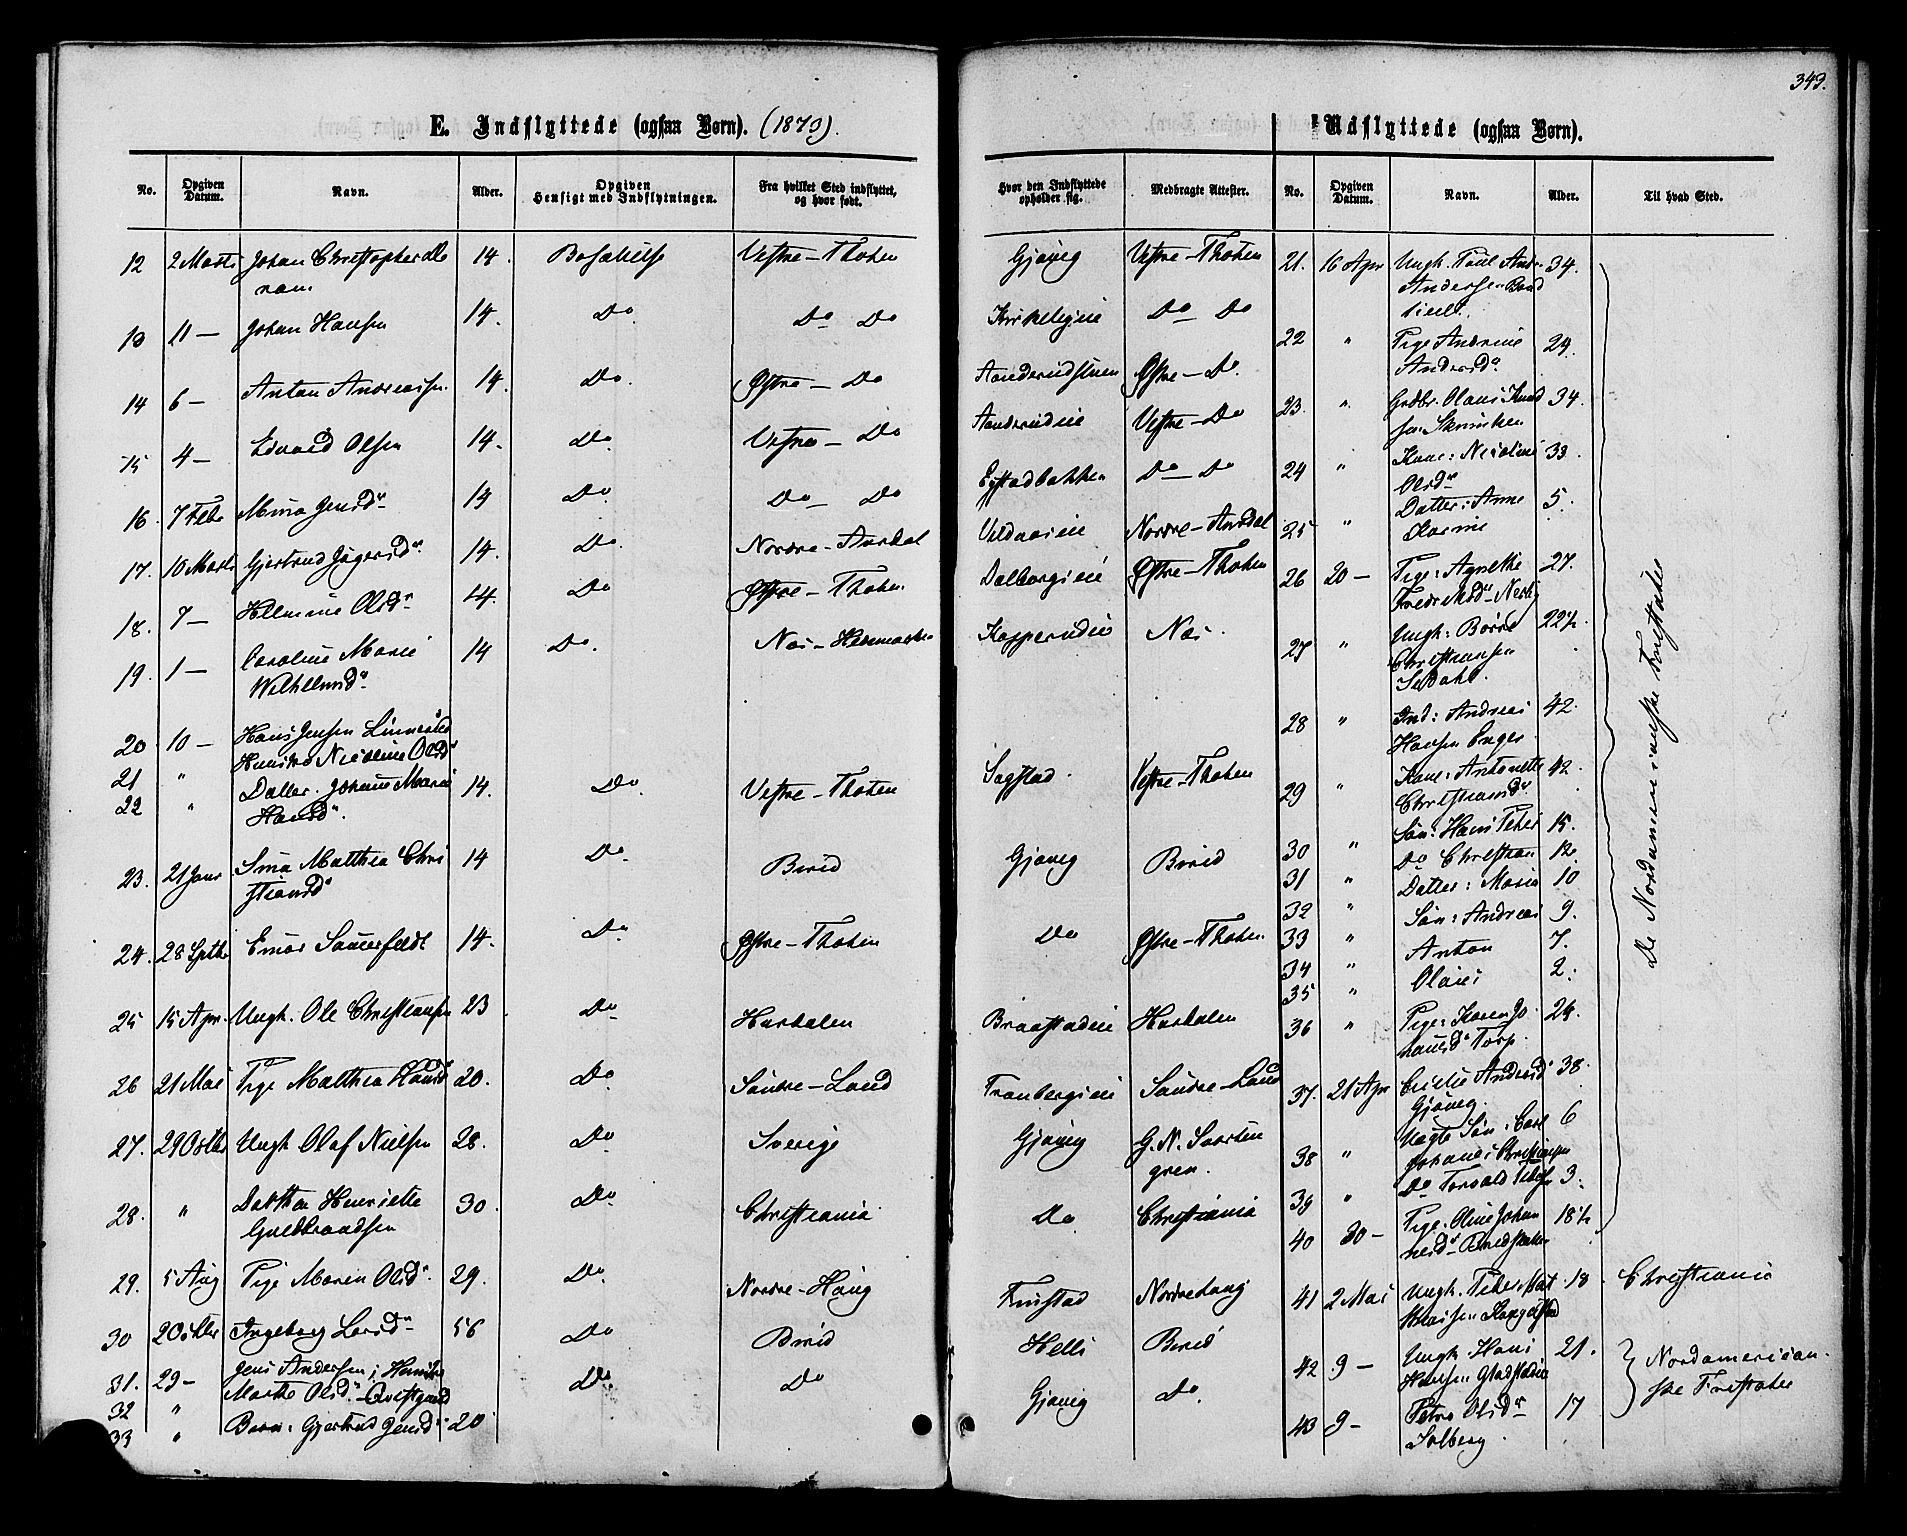 343.
E. Indflyttede (ogsaa Børn). (1879).
Udflyttede (ogsaa Børn).
No. Opgiven Datum. Navn. Alder. Opgiven Hensigt med Indflytningen. Fra hvilket Sted indflyttet, og hvor født.
Hvor den Indflyttede opholder sig. Medbragte Attester. No. Opgiven Datum. Navn. Alder. Til hvad Sted.
12 2 Marts Johan Christopher 14. Bosættelse Vestre-Thoten Gjøvig Vestre-Thoten
13 11 — Johan Hansen 14. Do Do Do Do Do
14 6 — Anton Andreassen 14. Do. Østre — Do Østre — Do.
15 4 — Edvard Olsen 14. Do Vestre — Do Vestre — Do
16. 7 Febr Mina Jensd. 14 Do Do — Do Do — Do
17. 10 Marts Gjertrud 14. Do. Nordre-Aurdal Nordre-Aurdal
18. 7 — Helmine Olsd. 14. Do Østre-Thoten Dalborgeie Østre-Thoten
19. 1 — Caroline Marie 14 Do. Næs-Hedemarken Næs.
20 10 — Hans Jensen
Hustru Nicoline Olsd
21 "
22 " Datter. Johanne Marie 14. Do Vestre-Thoten Sogstad. Vestre-Thoten
Hansd.
23. 21 Janr Matthea Chri 14 Do Birid Gjøvig Birid
stiansd
24. 28 Septbr 14. Do Østre-Thoten Do Østre-Thoten
25 15 Apr. Ungk. Ole Christiansen 23 Do Hurdalen Braastadeie Hurdalen
26 21 Mai Pige Matthea Hansd 20. Do Søndre-Land Tranbergeie Søndre-Land
27. 29 Octbr Ungk. Olaf Nielsen 28. Do Sverige Gjøvig G. N.
gren.
28. " Henriette 30. Do Christiania Do Christiania
Guldbrandsen
29. 5 Aug Pige Maren Olsd. 29. Do Nordre-Houg
30 2 Octbr Ingeborg Larsd. 56 Do Birid Birid
31. 29 — Jens Andersen; Hustru
Marthe Olsd. Qvistgaard Do. Do Gjøvig Do.
32 "
33 " Barn: Gjertrud Jensd 20
21. 16 Apr Ungk. Paul Andr. 34.
Andersen
22 " Pige Andrine 29.
Andersd
23. " Olaus Knud 34.
sen
24 " Kone: Nicoline 33.
Olsd
25 " Datter: Anne 5.
Karine
26 20 — Pige: Agnethe 27.
27 " Ungk: Børre 22½.
Christiansen
28 " Ind: Andreas 42.
Hansen Enger
29 " Kone: Antonette 42.
Christiansd.
30 " Søn: Hans Peter 15.
31 " Do Christian 12.
32 " Datter: Marie 10
33 " Søn: Andreas 9.
34 " Anton 7.
35 " Olaus 2.
36 " Pige: Karen Jo 24.
hansd. Torp.
37. 21 Apr Andersd 38.
Gjøvig.
38 " Uægte Søn: Carl 6
Johannes Christiansen
39 " Do Torvald 3.
40 30 — Pige: Oline Johan 18½
nesd.
De Nordamerikanske Fristater
41 2 Mai Ungk. Peder Mat 18. Christiania
42 9 — Ungk. Hans 21.
Hansen
43 9 — Petra Olsd. 17
Solberg.
Nordamerikan-
ske Fristater